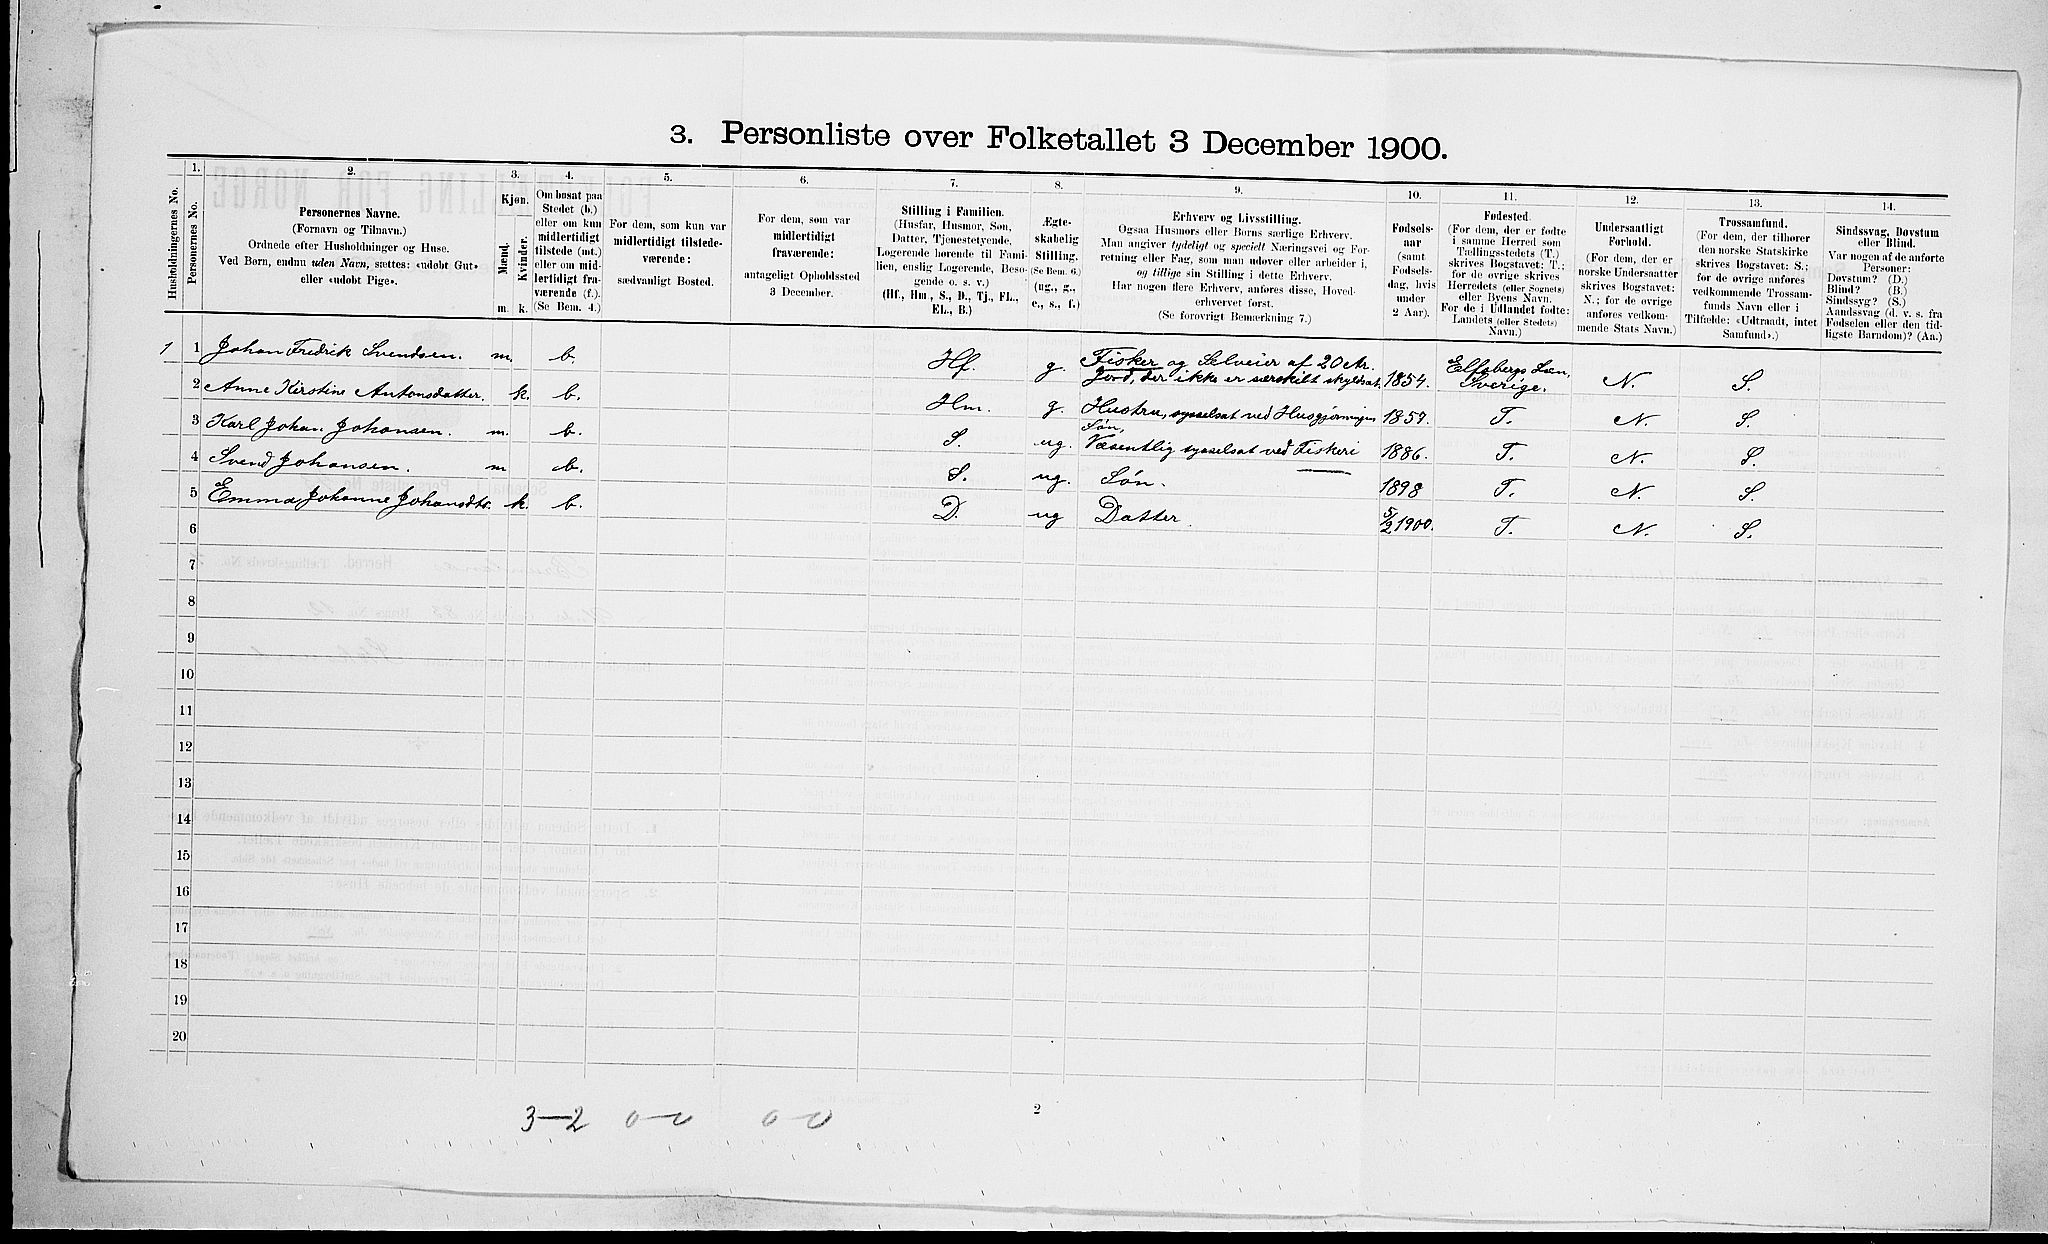 3. Personliste over Folketallet 3 December 1900.
Husholdningernes No.
1.
Personernes No.
2.
Personernes Navne.
(Fornavn og Tilnavn.)
Ordnede efter Husholdninger og Huse.
Ved Børn, endnu uden Navn, sættes: «udøbt Gut»
eller «udøbt Pige».
3.
Kjøn.
Mænd.
Kvinder.
m. k.
4.
Om bosat paa
Stedet (b.)
eller om kun
midlertidigt
tilstede (mt.)
eller om mid-
lertidigt fra-
værende (f.).
(Se Bem. 4.)
5.
For dem, som kun var
midlertidigt tilstede-
værende:
sædvanligt Bosted.
6.
For dem, som var
midlertidigt
fraværende:
antageligt Opholdssted
3 December.
7.
Stilling i Familien.
(Husfar, Husmor, Søn,
Datter, Tjenestetyende,
Logerende hørende til Fami-
lien, enslig Logerende, Besø-
gende o. s. v.)
(Hf., Hm., S., D., Tj., FL.,
EL., B.)
8.
Ægte-
skabelig
Stilling.
(Se Bem. 6.)
(ug., g.,
e., s., f.)
9.
Erhverv og Livsstilling.
Ogsaa Husmors eller Børns særlige Erhverv.
Man angiver tydeligt og specielt Næringsvei og For-
retning eller Fag, som man udøver eller arbeider i,
og tillige sin Stilling i dette Erhverv.
Har nogen flere Erhverv, anføres disse, Hoved-
erhvervet først.
(Se forøvrigt Bemærkning 7.)
10.
Fødsels-
aar
(samt
Fødsels-
dag, hvis
under
2 Aar).
11.
Fødested.
(For dem, der er fødte
i samme Herred som
Tællingsstedets (T.)
skrives Bogstavet: T.;
for de øvrige skrives
Herredets (eller Sognets)
eller Byens Navn.
For de i Udlandet fødte:
Landets (eller Stedets)
Navn.)
12.
Undersaatligt
Forhold.
(For dem, der er
norske Undersaatter
skrives Bogstavet:
N.; for de øvrige
anføres vedkom-
mende Stats Navn.)
13.
Trossamfund.
(For dem, der tilhører
den norske Statskirke
skrives Bogstavet: S.;
for de øvrige anføres
vedkommende Trossam-
funds Navn eller i
Tilfælde: «Udtraadt, intet
Samfund».)
14.
Sindssvag, Døvstum
eller Blind.
Var nogen af de anførte
Personer:
Døvstum? (D.)
Blind? (B.)
Sindssyg? (S.)
Aandssvag (d. v. s. fra
Fødselen eller den tid-
ligste Barndom)? (Aa.)
1 1 Johan Fredrik Svendsen. m. b. Hf. g. Fisker og Selveier af 20 Ar. Jord, der ikke er særskilt skyldsat. 1854. Elfsborgs Læn, Sverige. N. S.
2 Anne Kirstine Antonsdatter. k. b. Hm. g. Hustru, sysselsat ved Husgjerningen 1857. T. N. S.
3 Karl Johan Johansen. m. b. S. ug. Søn, Væsentlig sysselsat ved Fiskeri 1886. T. N. S.
4 Svend Johansen. m b. S. ug. Søn. 1898 T. N. S.
5 Emma Johanne Johansdtr. k. b. D. ug Datter. 5/2 1900. T. N. S.
6
7
8
9
10
11
12
13
14
15
16
17
18
19
20
3–2 0–0 0–0
2